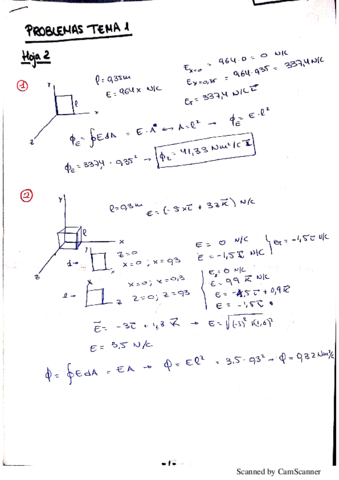 PROBLEMAS TEMA 1
Hoja 2
① l = 0,35m
E = 964x N/C
E x=0 = 964·0 = 0 N/C
E x=0,35 = 964·0,35 = 337,4 N/C
E_T = 337,4 N/C i
y
l
x
z
ϕ_E = ∮EdA = E·A ↔ A = l² → ϕ_E = E·l²
ϕ_E = 337,4·0,35² → ϕ_E = 41,33 Nm²/C
② l = 0,3m
E = (-5x i + 3z k) N/C
y
l
x
z
z=0
x=0; x=0,3
E = 0 N/C
E = -1,5 i N/C
E_T = -1,5 i N/C
x=0; x=0,3
z=0; z=0,3
E = 0 N/C
E = 0,9 k N/C
E = -1,5 i + 0,9 k
E = -1,5 i
E = -3 i + 1,8 k → E =
E = 3,5 N/C
ϕ = ∮EdA = EA → ϕ = El² = 3.5·0,3² → ϕ = 0,32 Nm²/C
-1-
Scanned by CamScanner